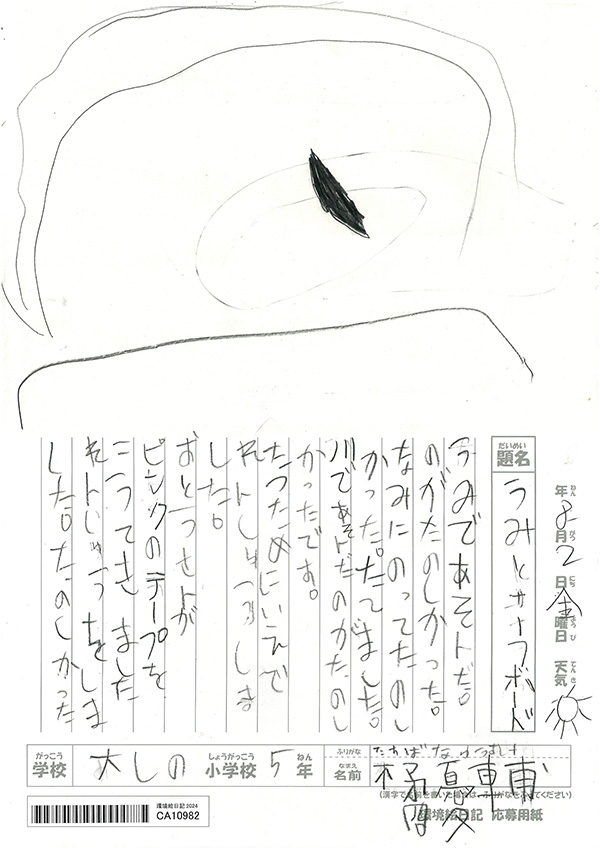 年 8月 2日 金曜日 天気
ねん がつ にち ようび てんき
だいめい
題名 うみとサーフボード
うみであそんだ。
のがたのしかった。
なみにのってたのし
かった。たてました。
川であそんだのがたのし
かったです。
たつためにいえで
れんしゅうしま
した。
おとうさんが
ピンクのテープを
もってきました
れんしゅうをしま
した。たのしかった
がっこう しょうがっこう ねん
学校 大しの 小学校 5年
ふりがな たちばな
なまえ
名前
(漢字で名前を書いた場合は、ふりがなをふってください)
環境絵日記 応募用紙
環境絵日記2024
CA10982